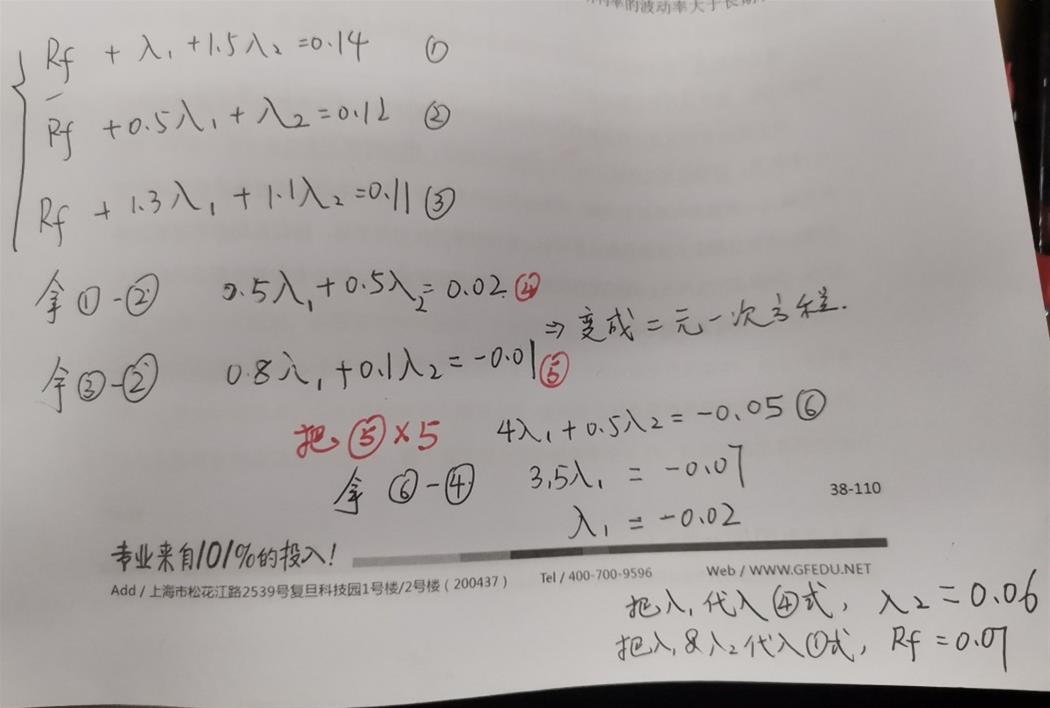 的波动率大于长期
Rf + λ₁ + 1.5λ₂ = 0.14 ①
Rf + 0.5λ₁ + λ₂ = 0.12 ②
Rf + 1.3λ₁ + 1.1λ₂ = 0.11 ③
拿①-② 0.5λ₁ + 0.5λ₂ = 0.02 ④
⇒ 变成二元一次方程.
拿③-② 0.8λ₁ + 0.1λ₂ = -0.01 ⑤
把⑤×5 4λ₁ + 0.5λ₂ = -0.05 ⑥
拿⑥-④ 3.5λ₁ = -0.07
38-110
λ₁ = -0.02
专业来自101%的投入!
Add / 上海市松花江路2539号复旦科技园1号楼/2号楼 ( 200437 ) Tel / 400-700-9596 Web / WWW.GFEDU.NET
把λ₁代入④式, λ₂ = 0.06
把λ₁&λ₂代入①式, Rf = 0.07